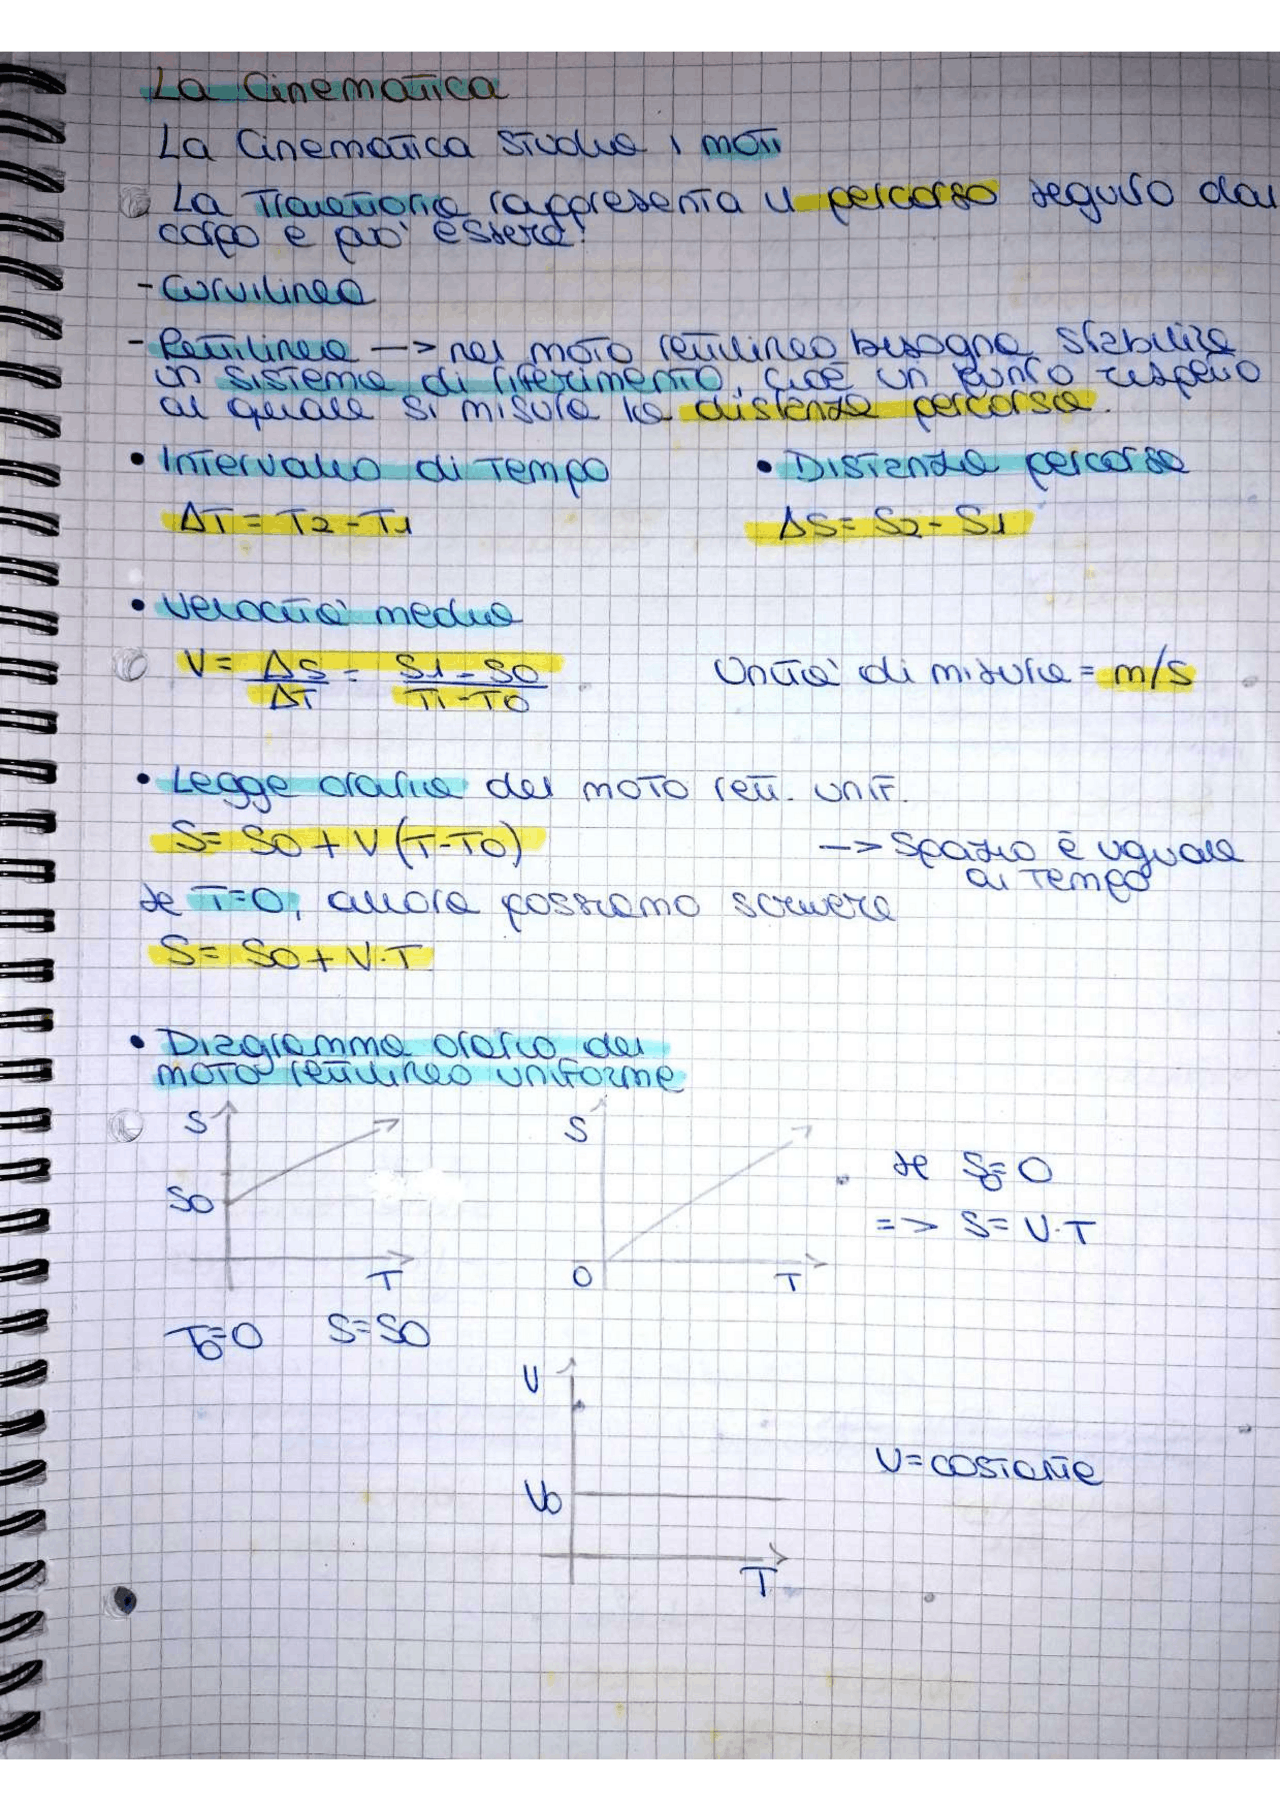 La Cinematica
La Cinematica studia i moti
La Traiettoria rappresenta il percorso seguito dal
corpo e può essere:
- Curvilinea
- Rettilinea --> nel moto rettilineo bisogna stabilire
un sistema di riferimento, cioè un punto rispetto
al quale si misura la distanza percorsa.
• Intervallo di Tempo
• Distanza percorsa
ΔT = T2 - T1
ΔS = S2 - S1
• Velocità media
V = ΔS/ΔT = S1 - S0/T1 - T0
Unità di misura = m/s
• Legge oraria del moto rett. unif.
S = S0 + V (T - T0)
--> Spazio è uguale
al Tempo
se T=0, allora possiamo scrivere
S = S0 + V·T
• Diagramma orario del
moto rettilineo uniforme
S
S0
T
T0=0 S=S0
S
0
T
se S0=0
=> S= V·T
V
V0
T
V=costante